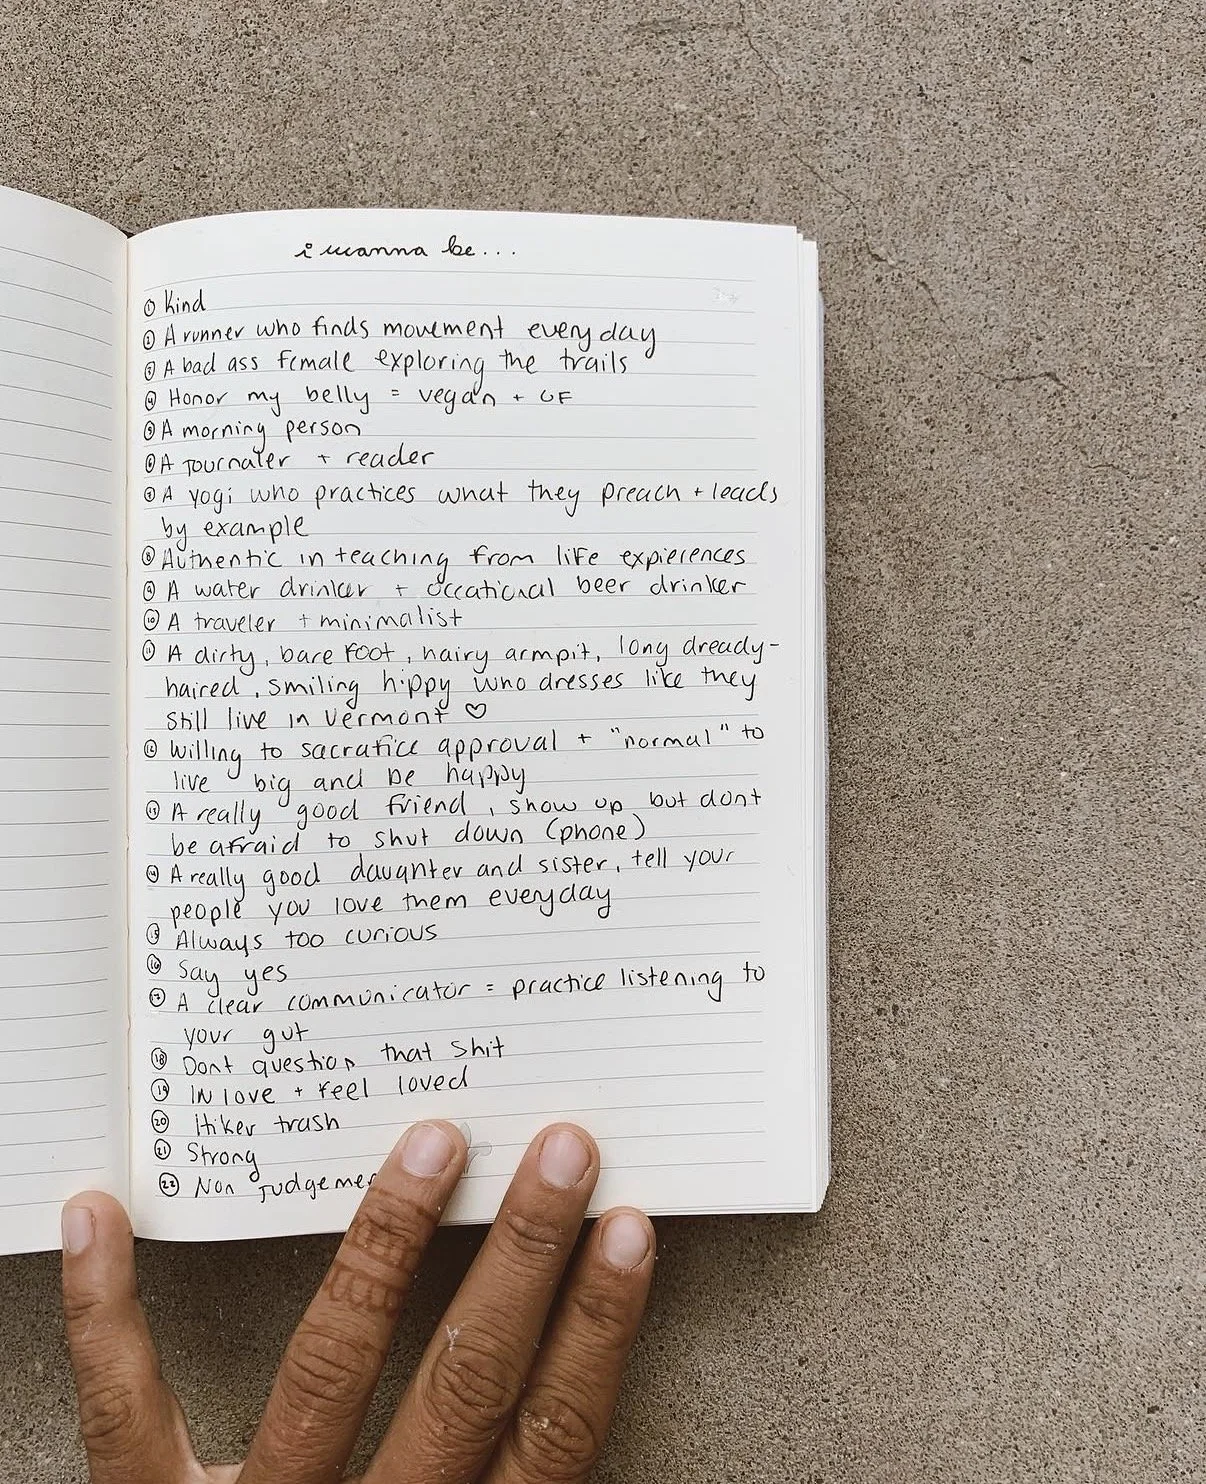 i wanna be...
① Kind
② A runner who finds movement everyday
③ A bad ass female exploring the trails
④ Honor my belly = vegan + GF
⑤ A morning person
⑥ A journaler + reader
⑦ A yogi who practices what they preach + leads
by example
⑧ Authentic in teaching from life expierences
⑨ A water drinker + occational beer drinker
⑩ A traveler + minimalist
⑪ A dirty, bare foot, hairy armpit, long dready-
haired, smiling hippy who dresses like they
still live in Vermont ♡
⑫ Willing to sacrafice approval + "normal" to
live big and be happy
⑬ A really good friend, show up but dont
be afraid to shut down (phone)
⑭ A really good daughter and sister, tell your
people you love them everyday
⑮ Always too curious
⑯ Say yes
⑰ A clear communicator = practice listening to
your gut
⑱ Dont question that shit
⑲ In love + feel loved
⑳ Hiker trash
㉑ Strong
㉒ Non